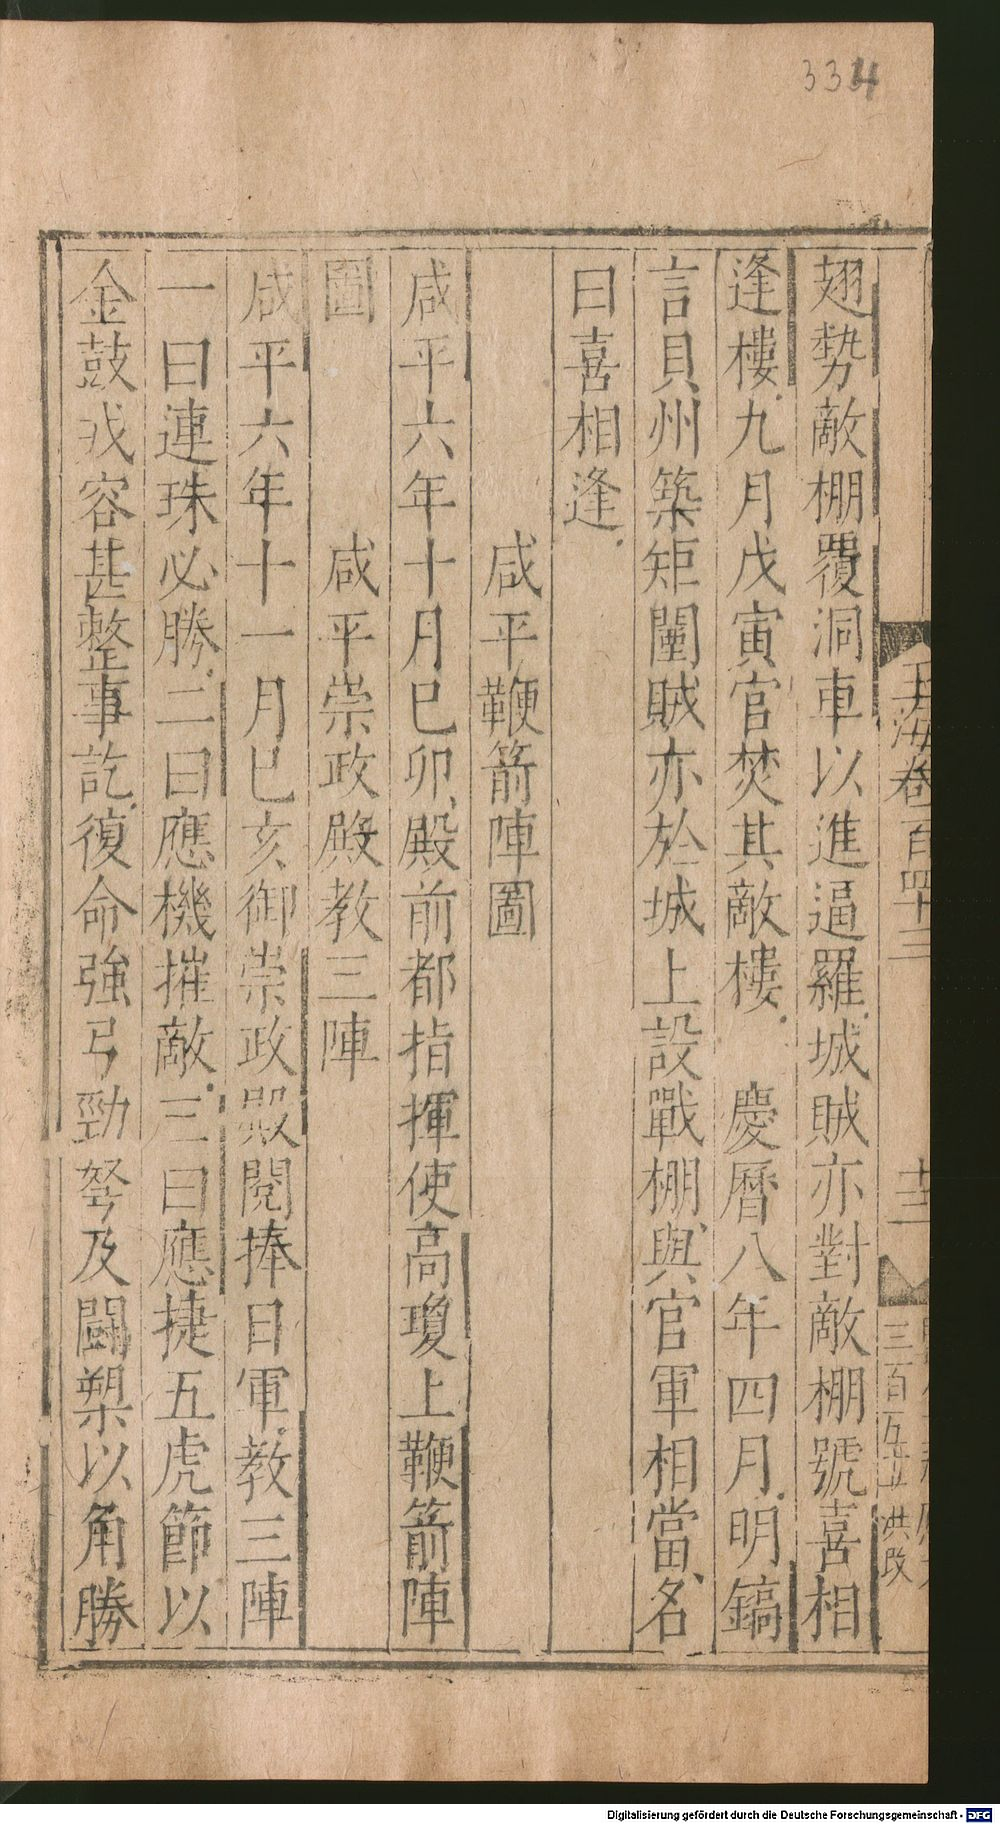 334
玉海卷一百四十三
翅勢敵棚覆洞車以進逼羅城賊亦對敵棚號喜相
逢樓九月戊寅官焚其敵樓 慶曆八年四月明鎬
言貝州築距闉賊亦於城上設戰棚與官軍相當名
曰喜相逢
咸平鞭箭陣圖
咸平六年十月己卯殿前都指揮使高瓊上鞭箭陣
圖
咸平崇政殿教三陣
咸平六年十一月己亥御崇政殿閱捧日軍教三陣
一曰連珠必勝二曰應機摧敵三曰應捷五虎節以
金鼓戎容甚整事訖復命強弓勁弩及鬬槊以角勝
Digitalisierung gefördert durch die Deutsche Forschungsgemeinschaft - DFG